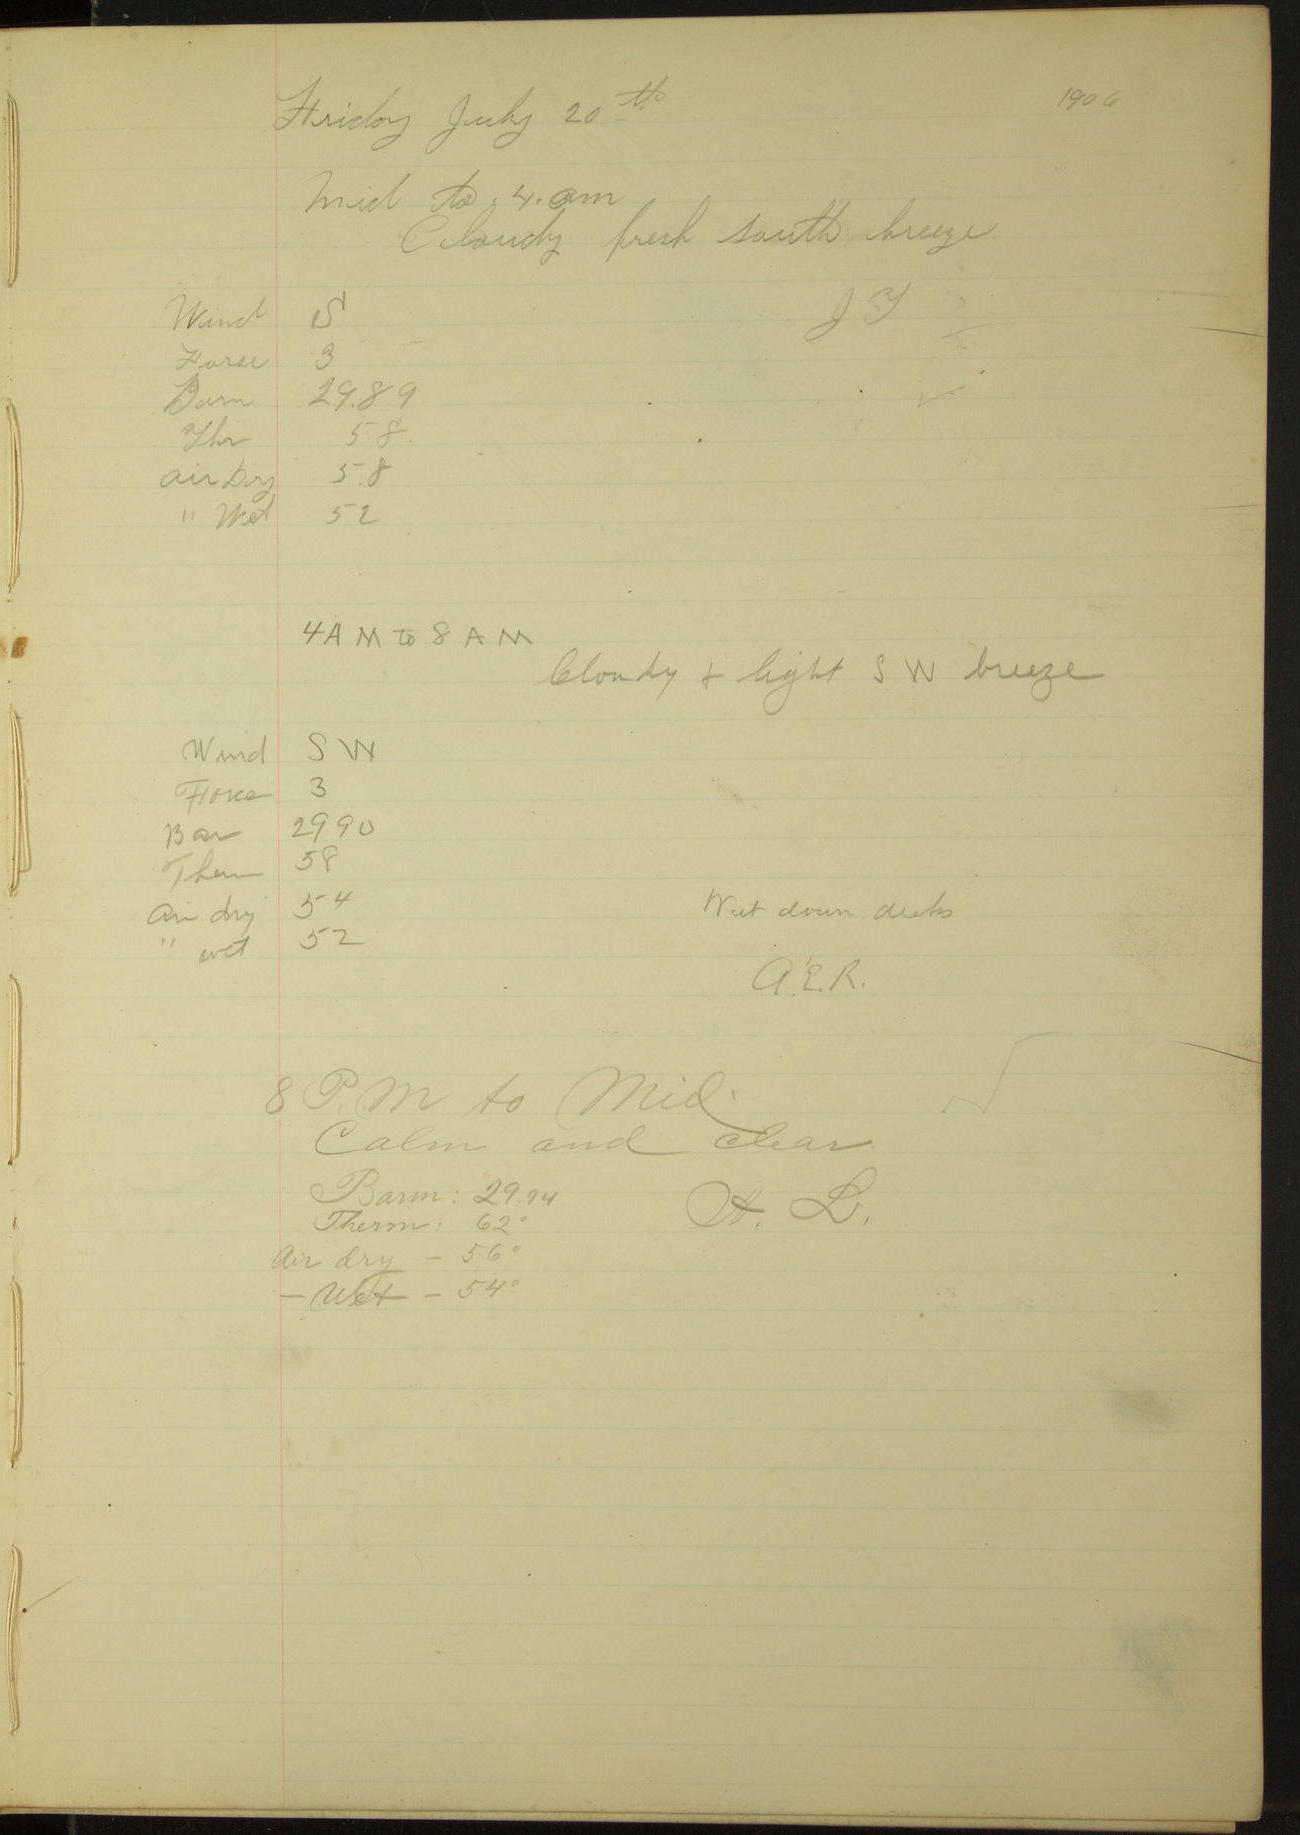 Friday July 20th 1906
Mid to 4. am
Cloudy fresh south breeze
Wind S
J
Forse 3
Barm 29.89
Thr 58
air Dry 58
" Wet 52
4 A M to 8 A M
Cloudy & light S W breeze
Wind S W
Force 3
Bar 2990
Ther 58
Air dry 54
Wet down decks
" wet 52
A.E.R.
8 P.M to Mid.
Calm and clear
Barm: 29.94
H. L.
Therm: 62°
Air dry - 56°
- Wet - 54°